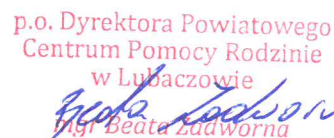 p.o. Dyrektora Powiatowego
Centrum Pomocy Rodzinie
w Lubaczowie
Beata Zadworn
mgr Beata Zadworna